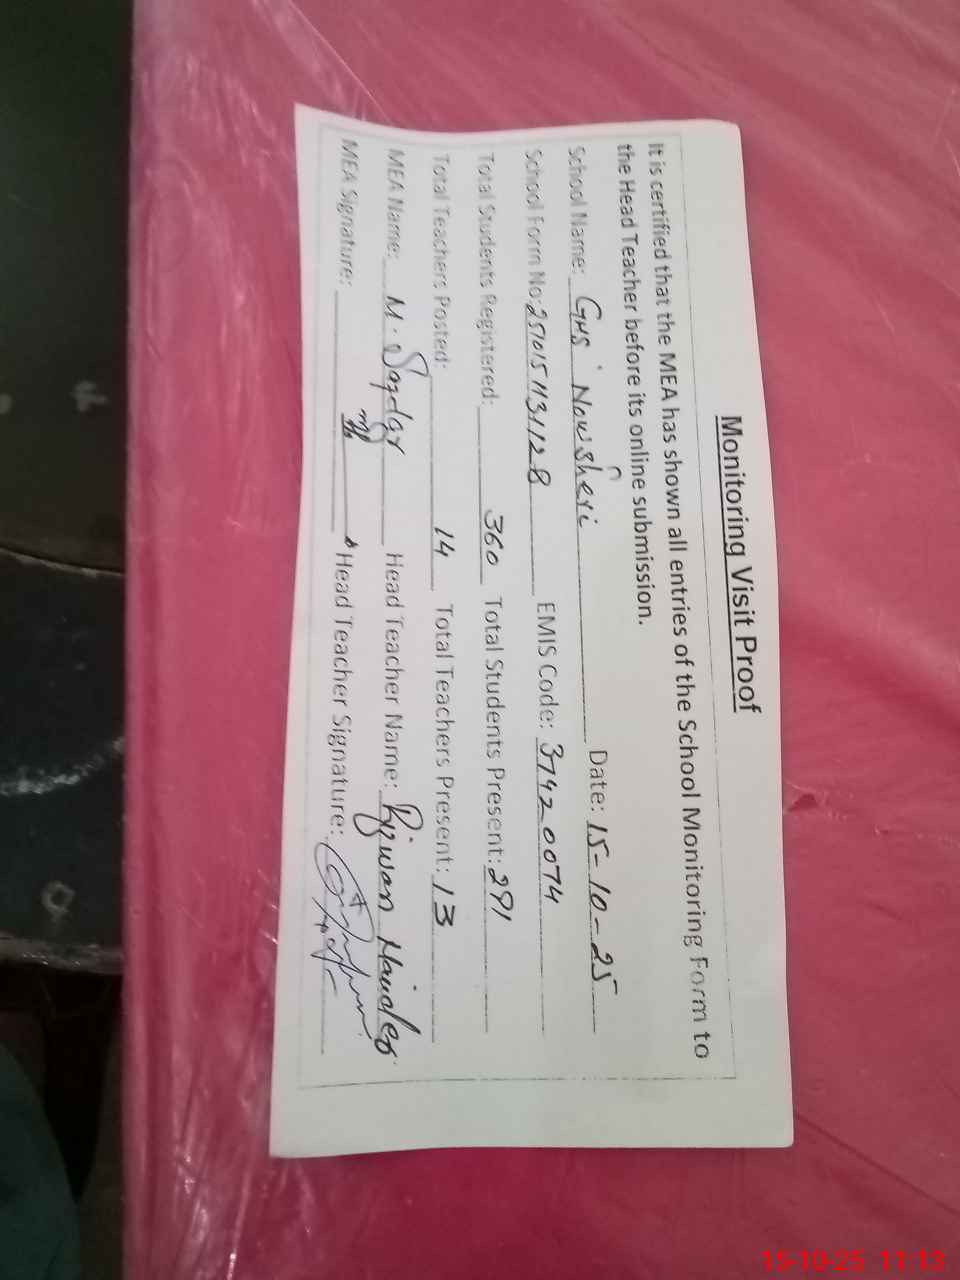 Monitoring Visit Proof
It is certified that the MEA has shown all entries of the School Monitoring Form to
the Head Teacher before its online submission.
School Name: GHS Nowsheri Date: 15-10-25
School Form No: 2510151131128 EMIS Code: 37420074
Total Students Registered: 360 Total Students Present: 291
Total Teachers Posted: 14 Total Teachers Present: 13
MEA Name: M. Head Teacher Name: Rizwan Haider
MEA Signature: Head Teacher Signature:
15-10-25 11:13